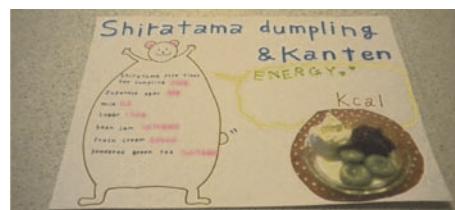 Shiratama dumpling
& Kanten
ENERGY
Kcal
Shiratama rice flour
for dumpling
Japanese agar
milk
sugar
bean jam
fresh cream
powdered green tea